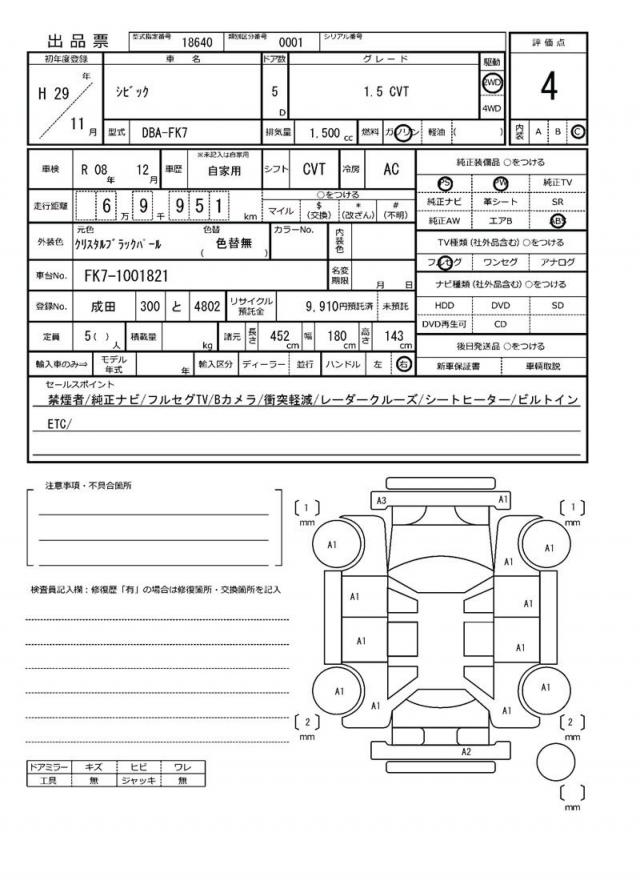 出品票 型式指定番号 18640 類別区分番号 0001 シリアル番号
評価点
4
内装 A B C
初年度登録 車名 ドア数 グレード 駆動
H 29 年 11 月 シビック 5 D 1.5 CVT 2WD 4WD
型式 DBA-FK7 排気量 1.500 cc 燃料 ガソリン 軽油 ( )
車検 R 08 年 12 月 車歴 ※未記入は自家用 自家用 シフト CVT 冷房 AC
走行距離 6 万 9 千 9 5 1 km ○をつける
マイル $ (交換) * (改ざん) # (不明)
外装色 元色 クリスタルブラックパール 色替 ( 色替無 ) カラーNo. 内装色
車台No. FK7-1001821 名変期限 月 日
登録No. 成田 300 と 4802 リサイクル預託金 9,910円預託済 未預託
定員 5( ) 人 積載量 kg 諸元 長さ 452 cm 幅 180 cm 高さ 143 cm
輸入車のみ⇒ モデル年式 年 輸入区分 ディーラー 並行 ハンドル 左 右
純正装備品 ○をつける
PS PW 純正TV
純正ナビ 革シート SR
純正AW エアB ABS
TV種類(社外品含む) ○をつける
フルセグ ワンセグ アナログ
ナビ種類(社外品含む) ○をつける
HDD DVD SD
DVD再生可 CD
後日発送品 ○をつける
新車保証書 車輌取説
セールスポイント
禁煙者/純正ナビ/フルセグTV/Bカメラ/衝突軽減/レーダークルーズ/シートヒーター/ビルトイン
ETC/
注意事項・不具合箇所
検査員記入欄：修復歴「有」の場合は修復箇所・交換箇所を記入
ドアミラー キズ ヒビ ワレ
工具 無 ジャッキ 無
A3 A1
1 mm 1 mm
A1 A1 A1
A1 A1
A1 A1
A1 A1 A1 A1
2 mm 2 mm
A2
mm